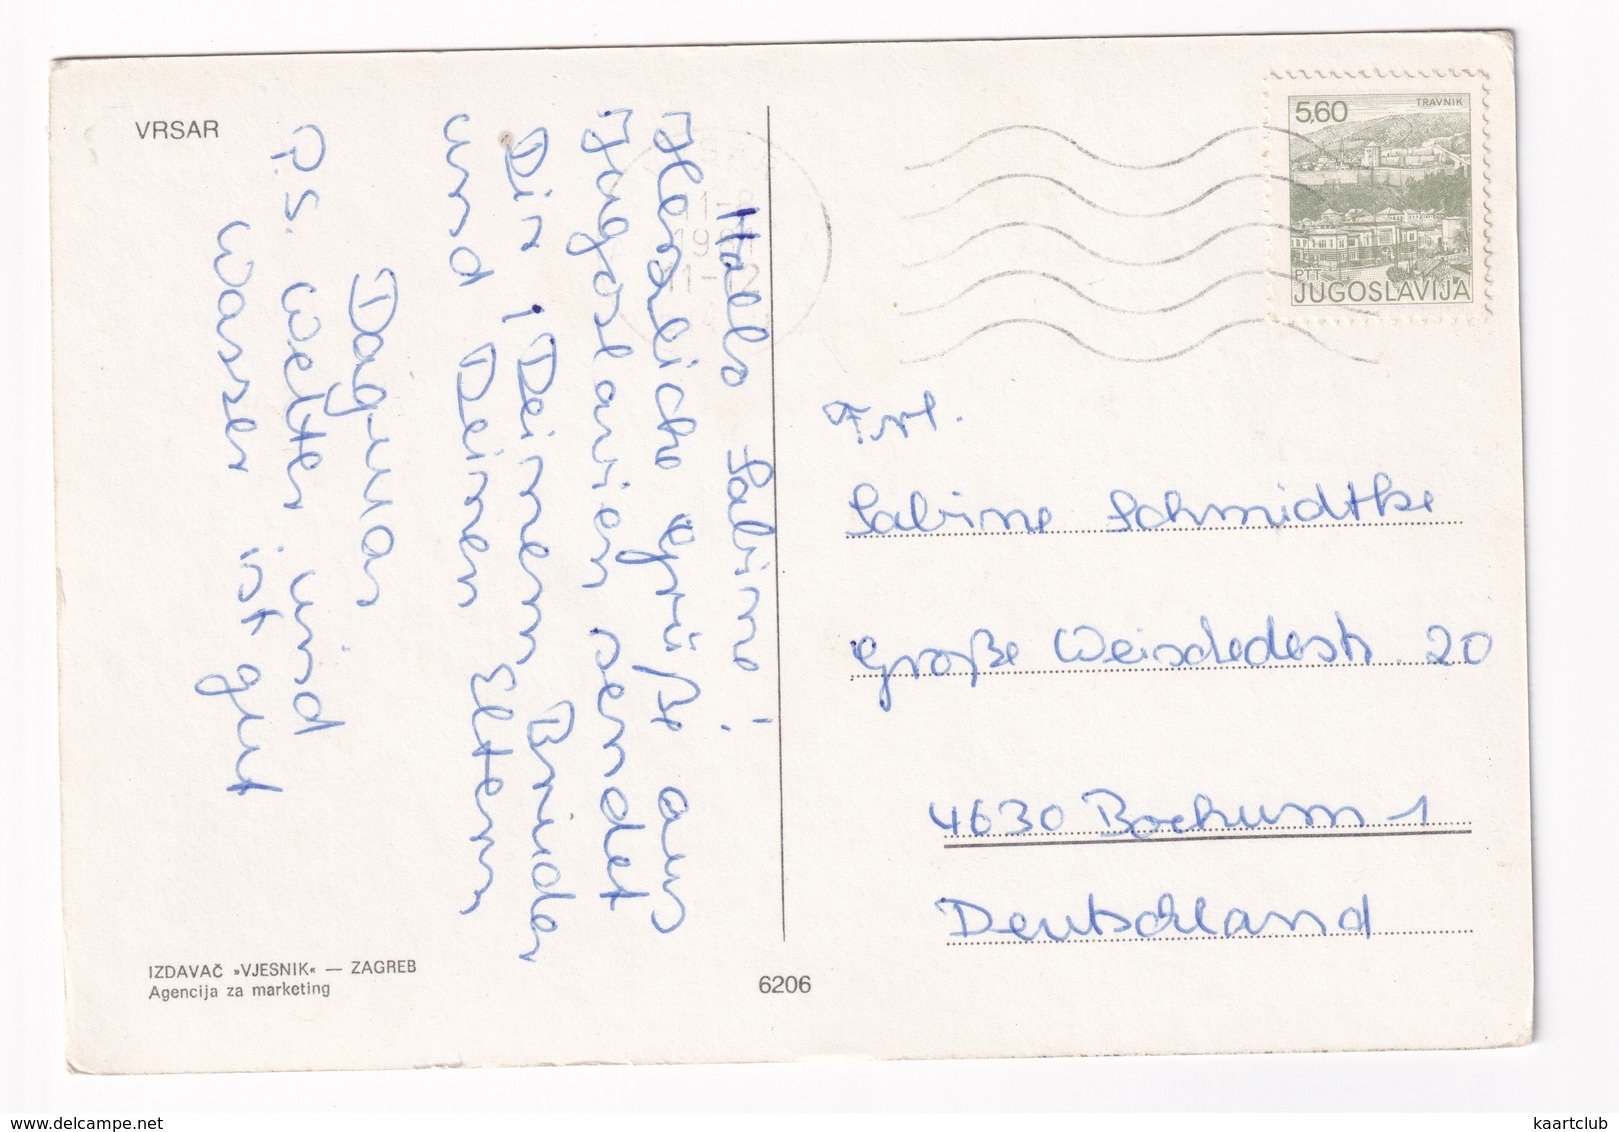 VRSAR
Hallo Sabine!
Herzliche Grüße aus
Jugoslavien sendet
Dir, Deinem Bruder
und Deinen Eltern
Dagmar
P.S. Wetter und
Wasser ist gut
IZDAVAČ »VJESNIK« — ZAGREB
Agencija za marketing
6206
5,60
TRAVNIK
PTT
JUGOSLAVIJA
11-12
Frl.
Sabine Schmidtke
Große Weischedestr. 20
4630 Bochum 1
Deutschland
kaartclub